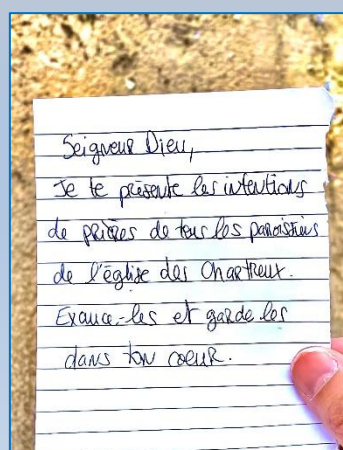 Seigneur Dieu,
Je te présente les intentions
de prières de tous les paroissiens
de l'église des Chartreux.
Exauce-les et garde les
dans ton coeur.